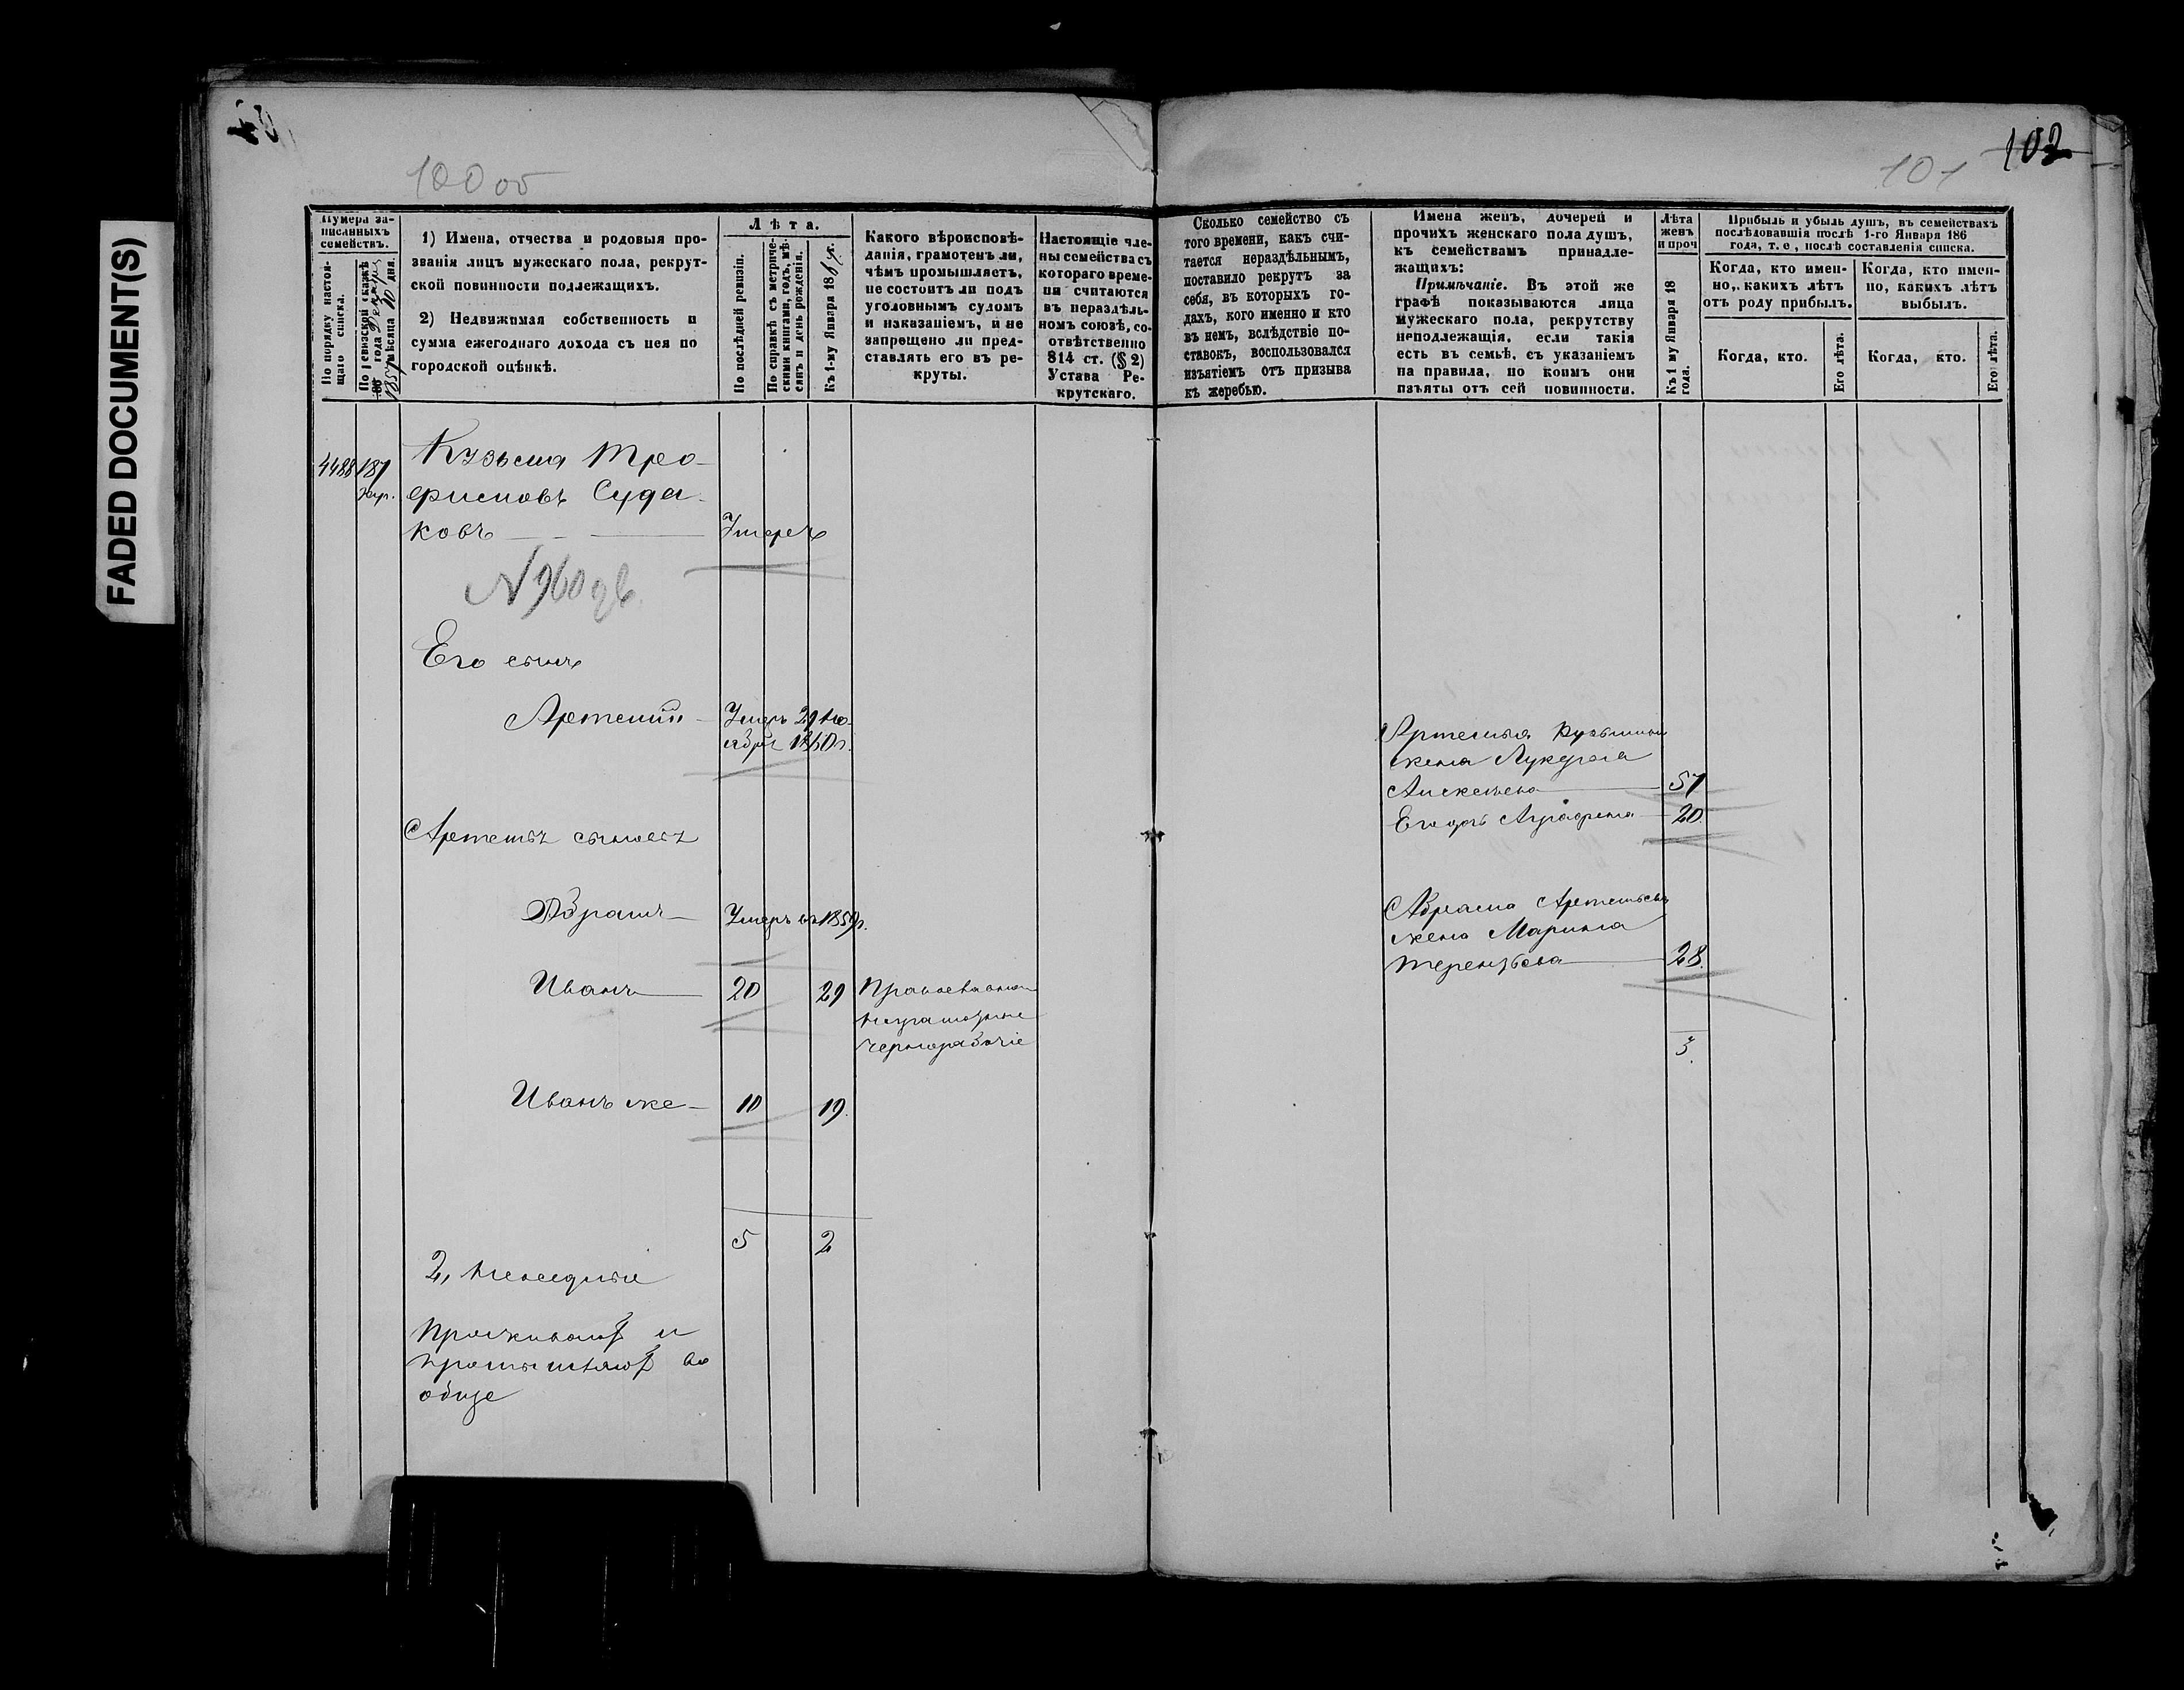 FADED DOCUMENT(S)
100 об
101
102
Нумера за-
писанныхъ
семействъ.
По порядку настоя-
щаго списка.
По ревизской сказкѣ
1857 года мѣсяца 10 дня.
1) Имена, отчества и родовыя про-
званія лицъ мужескаго пола, рекрут-
ской повинности подлежащихъ.
2) Недвижимая собственность и
сумма ежегоднаго дохода съ нея по
городской оцѣнкѣ.
Лѣта.
По послѣдней ревизіи.
По справкѣ съ метриче-
скими книгами, годъ, мѣ-
сяцъ и день рожденія.
Къ 1-му Января 186 г.
Какого вѣроисповѣ-
данія, грамотенъ ли,
чѣмъ промышляетъ,
не состоитъ ли подъ
уголовнымъ судомъ
и наказаніемъ, и не
запрещено ли пред-
ставлять его въ ре-
круты.
Настоящіе чле-
ны семейства съ
котораго време-
ни считаются
въ нераздѣль-
номъ союзѣ, со-
отвѣтственно
814 ст. (§ 2)
Устава Ре-
крутскаго.
Сколько семейство съ
того времени, какъ счи-
тается нераздѣльнымъ,
поставило рекрутъ за
себя, въ которыхъ го-
дахъ, кого именно и кто
въ немъ, вслѣдствіе по-
ставокъ, воспользовался
изъятіемъ отъ призыва
къ жеребью.
Имена женъ, дочерей и
прочихъ женскаго пола душъ,
къ семействамъ принадле-
жащихъ:
Примѣчаніе. Въ этой же
графѣ показываются лица
мужескаго пола, рекрутству
неподлежащія, если такія
есть въ семьѣ, съ указаніемъ
на правила, по коимъ они
изъяты отъ сей повинности.
Лѣта
женъ
и проч
Къ 1 му Января 18
года.
Прибыль и убыль душъ, въ семействахъ
послѣдовавшія послѣ 1-го Января 186
года, т. е., послѣ составленія списка.
Когда, кто имен-
но, какихъ лѣтъ
отъ роду прибылъ.
Когда, кто имен-
но, какихъ лѣтъ
выбылъ.
Когда, кто.
Его лѣта.
Когда, кто.
Его лѣта.
4488 187
Кузьма Тро-
фимовъ Суда-
ковъ Умеръ
№ 960
Его сынъ
Артемій Умеръ 29 Но-
ября 1860 г.
Артемья Кузьмина
жена Лукерья
Алексѣева 51
Его дочь Аграфена 20.
Артемья сыновья
Абрамъ Умеръ въ 1859 г.
Абрама Артемьева
жена Марина
Терентьева 28.
Иванъ 20 29 Православные
неграмотные
чернорабочіе
3.
Иванъ же 10 19.
5 2
2, Неимѣютъ
Проживаютъ и
промышляютъ во
обще